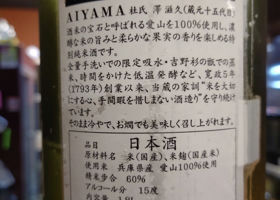 AIYAMA 杜氏 澤 滋久(蔵元十五代目)
酒米の宝石と呼ばれる愛山を100%使用し、濃
醇な米の旨みと柔らかな果実の香りを楽しめる特
別純米酒です。
全量手洗いでの限定吸水・吉野杉の甑での蒸
米、時間をかけた低温発酵など、寛政5年
(1793年)創業以来、当蔵の家訓"米を大切
にする心、手間暇を惜しまない酒造り"を守り続け
ています。
そのまま冷やで、お燗でも美味しく召し上がれます。
品目 日本酒
原材料名 米(国産)、米麹(国産米)
使用米 兵庫県産 愛山100%使用
精米歩合 60%
アルコール分 15度
内容量 1.8L